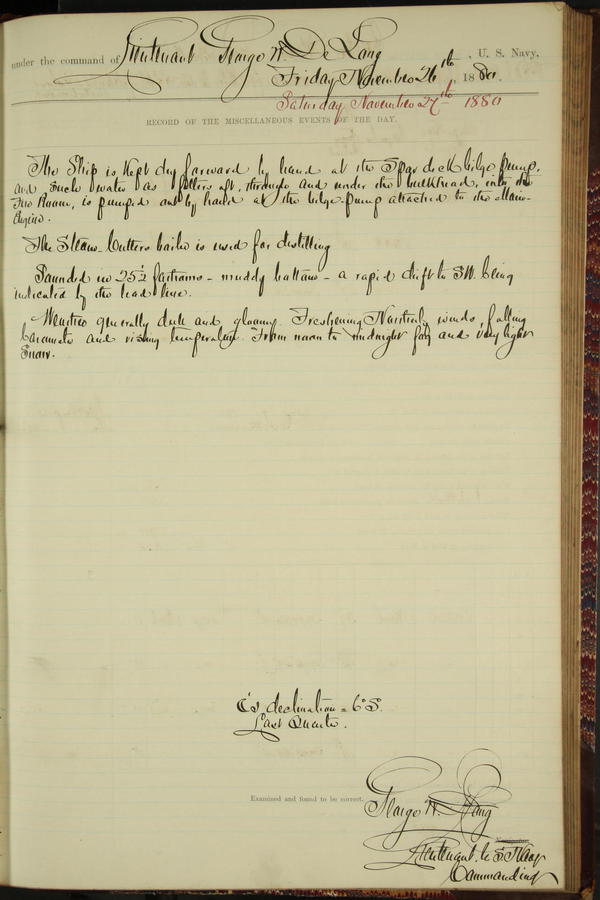 under the command of Lieutenant George W. De Long, U. S. Navy,
Friday November 26th, 1880.
Saturday November 27th 1880
RECORD OF THE MISCELLANEOUS EVENTS OF THE DAY.
The Ship is Kept dry forward by hand at the Spar deck bilge pump,
and such water as filters aft, through and under the bulkhead, into the
Fire Room, is pumped out by hand at the bilge-pump attached to the Main-
Engine.
The Steam-Cutters boiler is used for distilling
Sounded in 25½ fathoms - muddy bottom - a rapid drift to SW. being
indicated by the lead line.
Weather generally dull and gloomy. Freshening Northerly winds, falling
barometer and rising temperature. From noon to midnight fog and very light
Snow.
☾'s declination = 6° S.
Last Quarter.
Examined and found to be correct.
George W. De Long
Navigator.
Lieutenant. U. S. Navy
Commanding